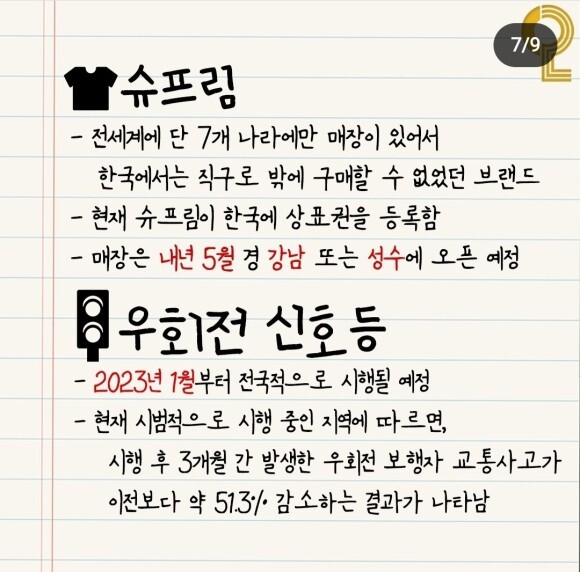 7/9
슈프림
- 전세계에 단 7개 나라에만 매장이 있어서
한국에서는 직구로 밖에 구매할 수 없었던 브랜드
- 현재 슈프림이 한국에 상표권을 등록함
- 매장은 내년 5월 경 강남 또는 성수에 오픈 예정
우회전 신호등
- 2023년 1월부터 전국적으로 시행될 예정
- 현재 시범적으로 시행 중인 지역에 따르면,
시행 후 3개월 간 발생한 우회전 보행자 교통사고가
이전보다 약 51.3% 감소하는 결과가 나타남